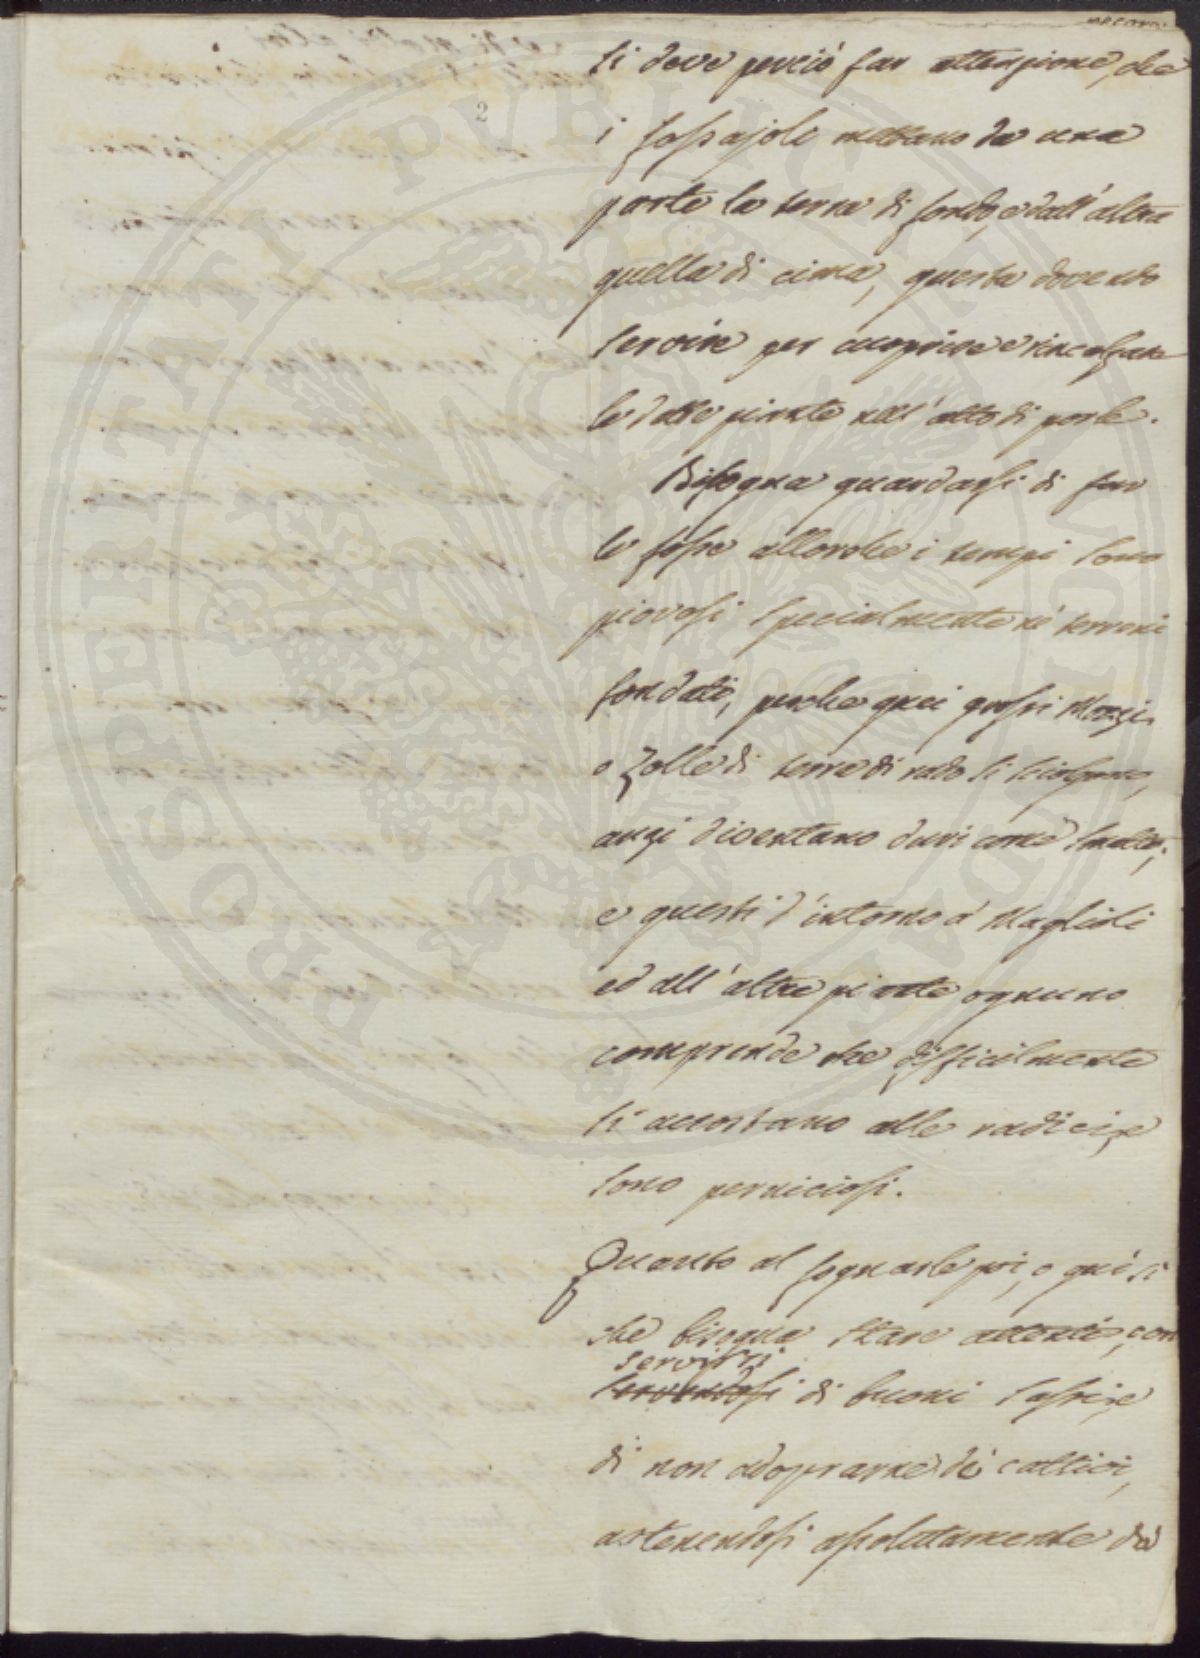 si deve perciò far attenzione, che
i fossajoli mettano da una
parte la terra di fondo, e dall'altra
quella di cima, questa dovendo
servire per cuoprire e rincalzare
le dette piante nell'atto di porle.
Bisogna guardarsi di far
le fosse allorchè i tempi sono
piovosi specialmente ne' terreni
sondati, perchè quei grossi Mozzi
o Zolle di terra di rado si sciolgono,
anzi diventano duri come smalto;
e questi d'intorno a' Maglioli
ed all'altre piante ognuno
comprende che difficilmente
si accostano alle radici, e
sono perniciosi.
Quanto al fognarle poi, o quì sì
che bisogna stare attenti, con
servirsi
servendosi di buoni sassi, e
di non adoprarne de' cattivi,
astenendosi assolutamente da
2
PUBLICAE
PROSPERITATI